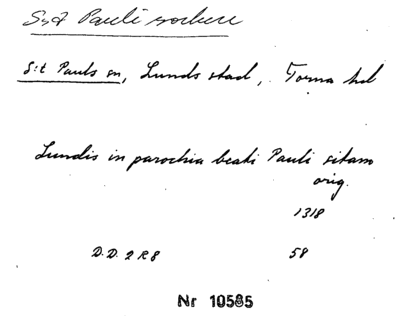 S:t Pauli socken
S:t Pauls sn, Lunds stad, Torna hd
Lundis in parochia beati Pauli sitam
orig.
1318
D.D. 2 R 8 58
Nr 10585